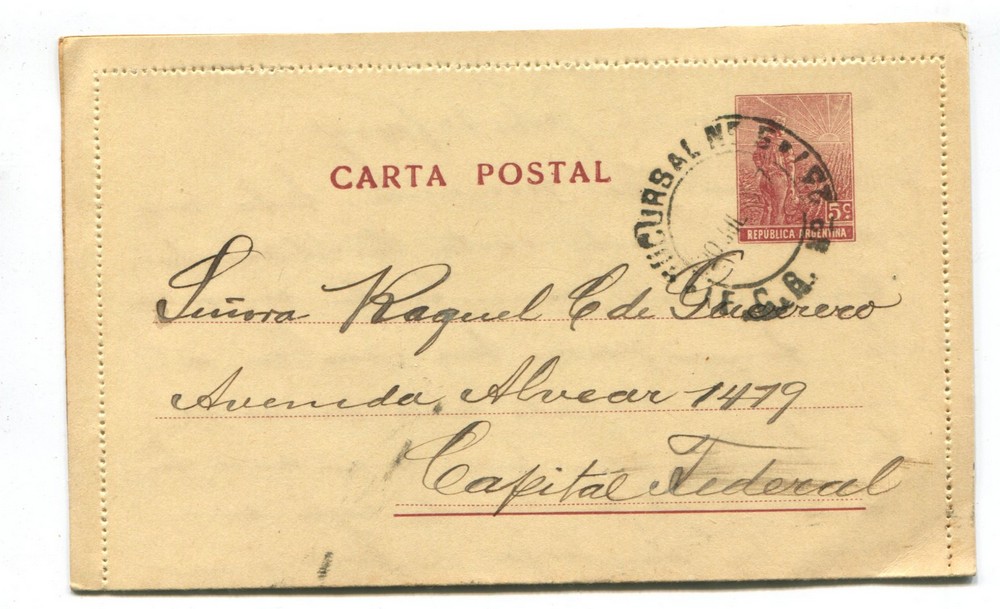 CARTA POSTAL
5c
REPUBLICA ARGENTINA
SUCURSAL Nº
Señora Raquel C de Guerrero
Avenida Alvear 1479
Capital Federal